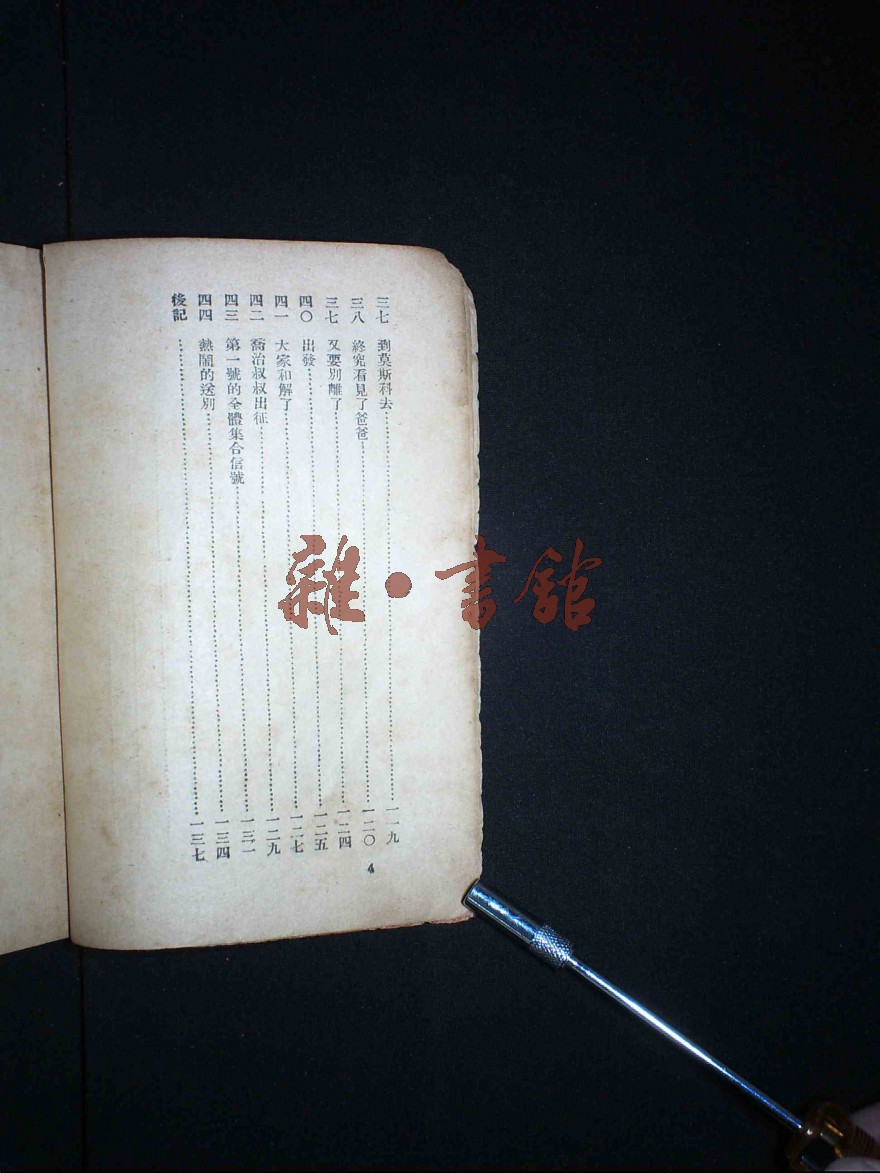 三七 到莫斯科去 一一九
三八 終究看見了爸爸 一二〇
三七 又要別離了 一二四
四〇 出發 一二五
四一 大家和解了 一二七
四二 喬治叔叔出征 一二九
四三 第一號的全體集合信號 一三二
四四 熱鬧的送別 一三四
後記 一三七
4
雜·書館